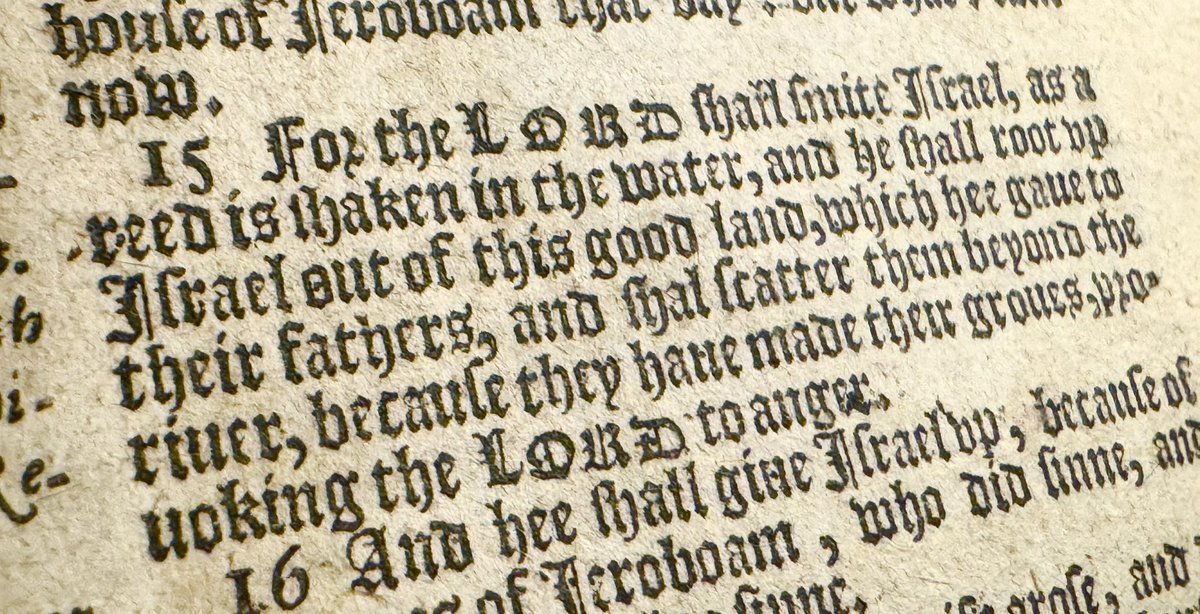 houſe of Ieroboam that day: but what
now.
15 For the LORD ſhall ſmite Iſrael, as a
reed is ſhaken in the water, and he ſhall root vp
Iſrael out of this good land, which hee gaue to
their fathers, and ſhal ſcatter them beyond the
riuer, becauſe they haue made their groues, pro-
uoking the LORD to anger.
16 And hee ſhall giue Iſrael vp, becauſe of
of Ieroboam, who did ſinne, and
ſinne. aroſe, and